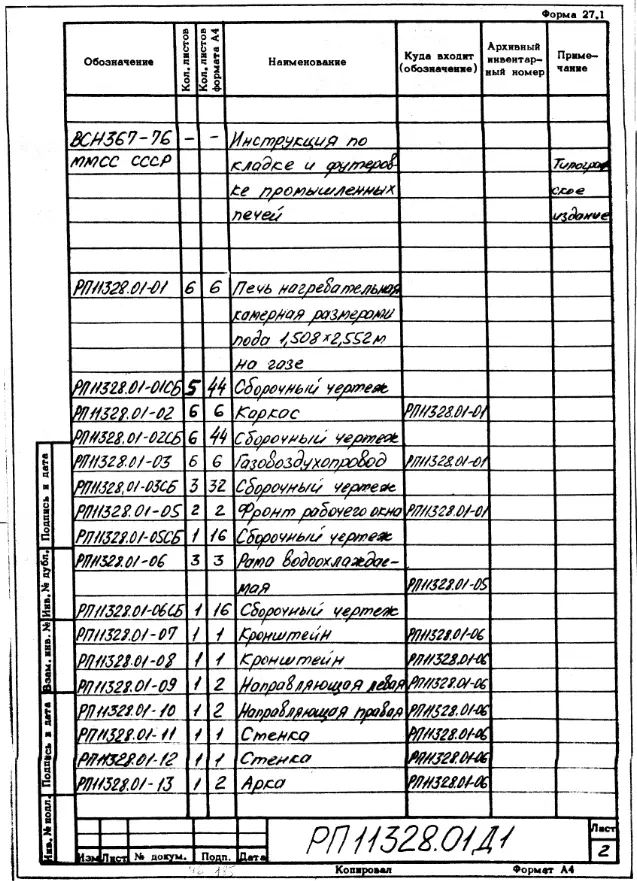 Форма 27.1
Обозначение Кол. листов Кол. листов формата А4 Наименование Куда входит (обозначение) Архивный инвентар-ный номер Приме-чание
ВСН367-76 - - Инструкция по
ММСС СССР кладке и футеров- Типограф
ке промышленных ское
печей издание
РП11328.01-01 6 6 Печь нагревательная
камерная размерами
пода 1,508×2,552м
на газе
РП11328.01-01СБ 5 44 Сборочный чертеж
РП11328.01-02 6 6 Каркас РП11328.01-01
РП11328.01-02СБ 6 44 Сборочный чертеж
РП11328.01-03 6 6 Газовоздухопровод РП11328.01-01
РП11328.01-03СБ 3 32 Сборочный чертеж
РП11328.01-05 2 2 Фронт рабочего окна РП11328.01-01
РП11328.01-05СБ 1 16 Сборочный чертеж
РП11328.01-06 3 3 Рама водоохлаждае-
мая РП11328.01-05
РП11328.01-06СБ 1 16 Сборочный чертеж
РП11328.01-07 1 1 Кронштейн РП11328.01-06
РП11328.01-08 1 1 Кронштейн РП11328.01-06
РП11328.01-09 1 2 Направляющая левая РП11328.01-06
РП11328.01-10 1 2 Направляющая правая РП11328.01-06
РП11328.01-11 1 1 Стенка РП11328.01-06
РП11328.01-12 1 1 Стенка РП11328.01-06
РП11328.01-13 1 2 Арка РП11328.01-06
Инв. № подл. Подпись и дата Взам. инв. № Инв. № дубл. Подпись и дата
Изм Лист № докум. Подп. Дата
РП11328.01Д1
Лист
2
Копировал Формат А4